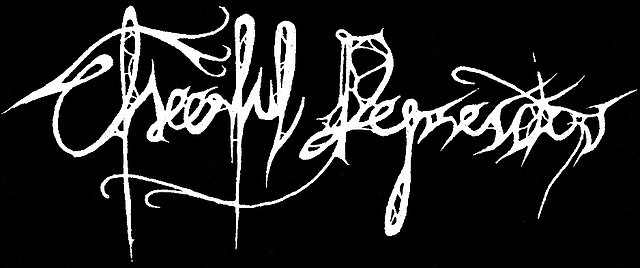 Cheerful Depression